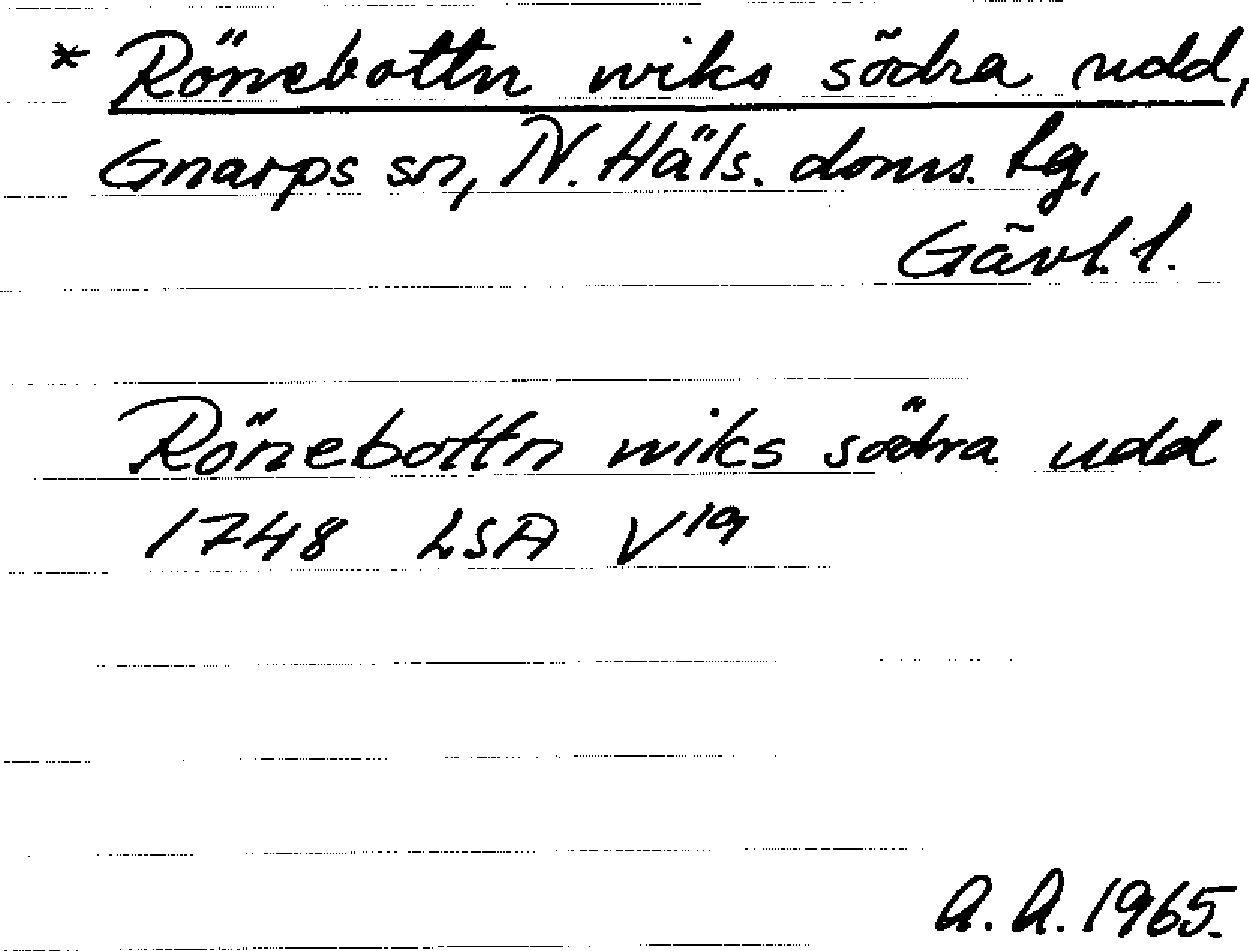 * Rönebottn wiks södra udd,
Gnarps sn, N. Häls. doms. tg,
Gävl. l.
Rönebottn wiks södra udd
1748 LSA V19
A. A. 1965.